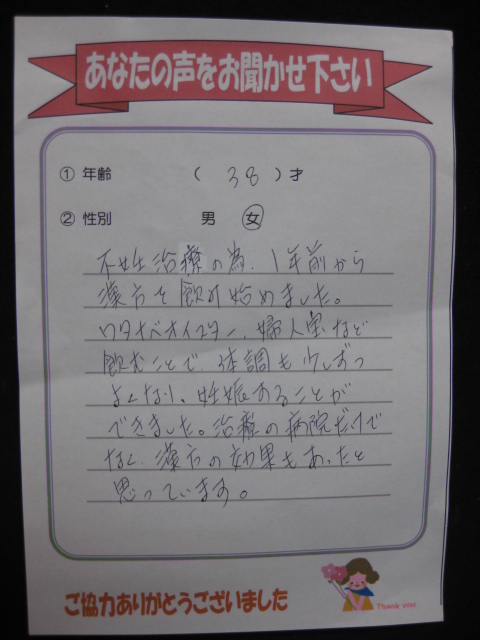 あなたの声をお聞かせ下さい
① 年齢 ( 38 ) 才
② 性別 男 女
不妊治療の為、1年前から
漢方を飲み始めました。
ワタナベオイスター、婦人宝など
飲むことで、体調も少しずつ
よくなり、妊娠することが
できました。治療の病院だけで
なく、漢方の効果もあったと
思っています。
ご協力ありがとうございました
Thank you